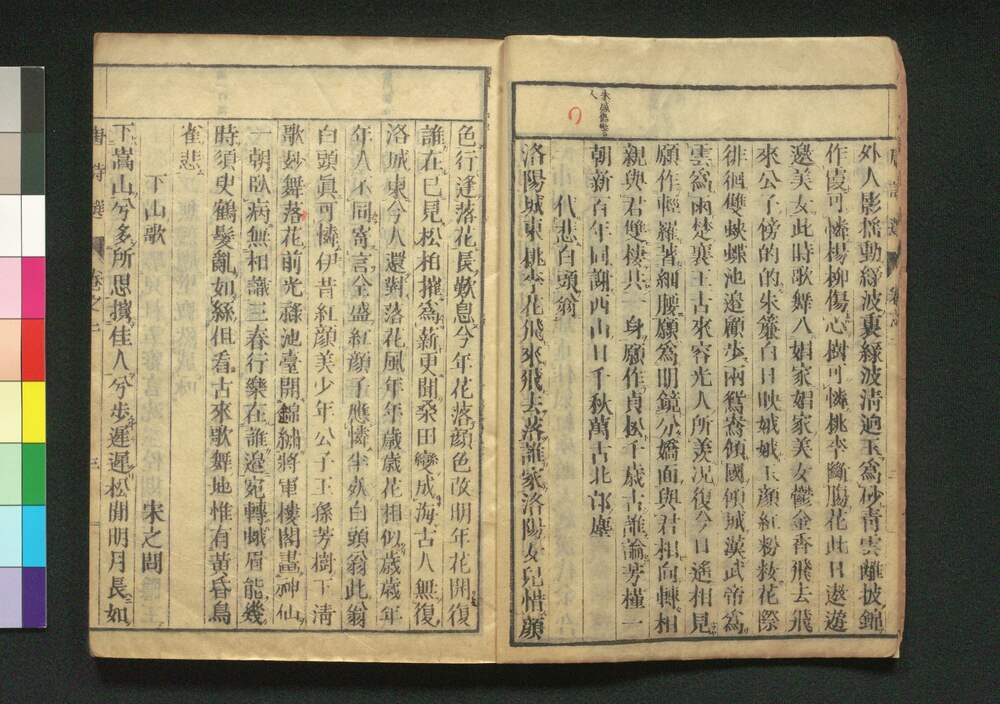 外人影搖動綠波裏綠波清迥玉爲砂靑雲離披錦
作霞可憐楊柳傷心樹可憐桃李斷腸花此日遨遊
邀美女此時歌舞入娼家娼家美女鬱金香飛去飛
來公子傍的的朱簾白日映娥娥玉顏紅粉妝花際
徘徊雙蛺蝶池邊顧步兩鴛鴦傾國傾城漢武帝爲
雲爲雨楚襄王古來容光人所羨況復今日遙相見
願作輕羅著細腰願爲明鏡分嬌面與君相向轉相
親與君雙棲共一身願作貞松千歲古誰論芳槿一
朝新百年同謝西山日千秋萬古北邙塵
代悲白頭翁
洛陽城東桃李花飛來飛去落誰家洛陽女兒惜顏
色行逢落花長歎息今年花落顏色改明年花開復
誰在已見松柏摧爲薪更聞桑田變成海古人無復
洛城東今人還對落花風年年歲歲花相似歲歲年
年人不同寄言全盛紅顏子應憐半死白頭翁此翁
白頭眞可憐伊昔紅顏美少年公子王孫芳樹下淸
歌妙舞落花前光祿池臺開錦繡將軍樓閣畫神仙
一朝臥病無相識三春行樂在誰邊宛轉蛾眉能幾
時須臾鶴髮亂如絲但看古來歌舞地惟有黃昏鳥
雀悲
下山歌 宋之問
下嵩山兮多所思攜佳人兮步遲遲松間明月長如
唐詩選 卷之二 三